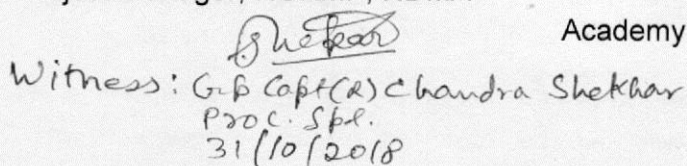 Shekhar
Academy
Witness: Gp Capt(R) Chandra Shekhar
Proc. Spl.
31/10/2018